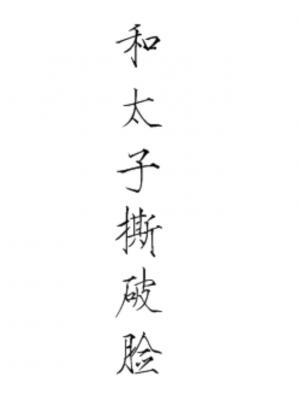 和太子撕破脸